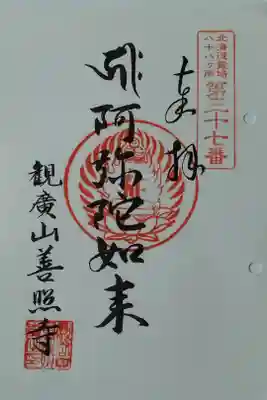 北海道霊場
八十八ヶ所
第三十七番
奉拝
阿弥陀如来
觀廣山善照寺